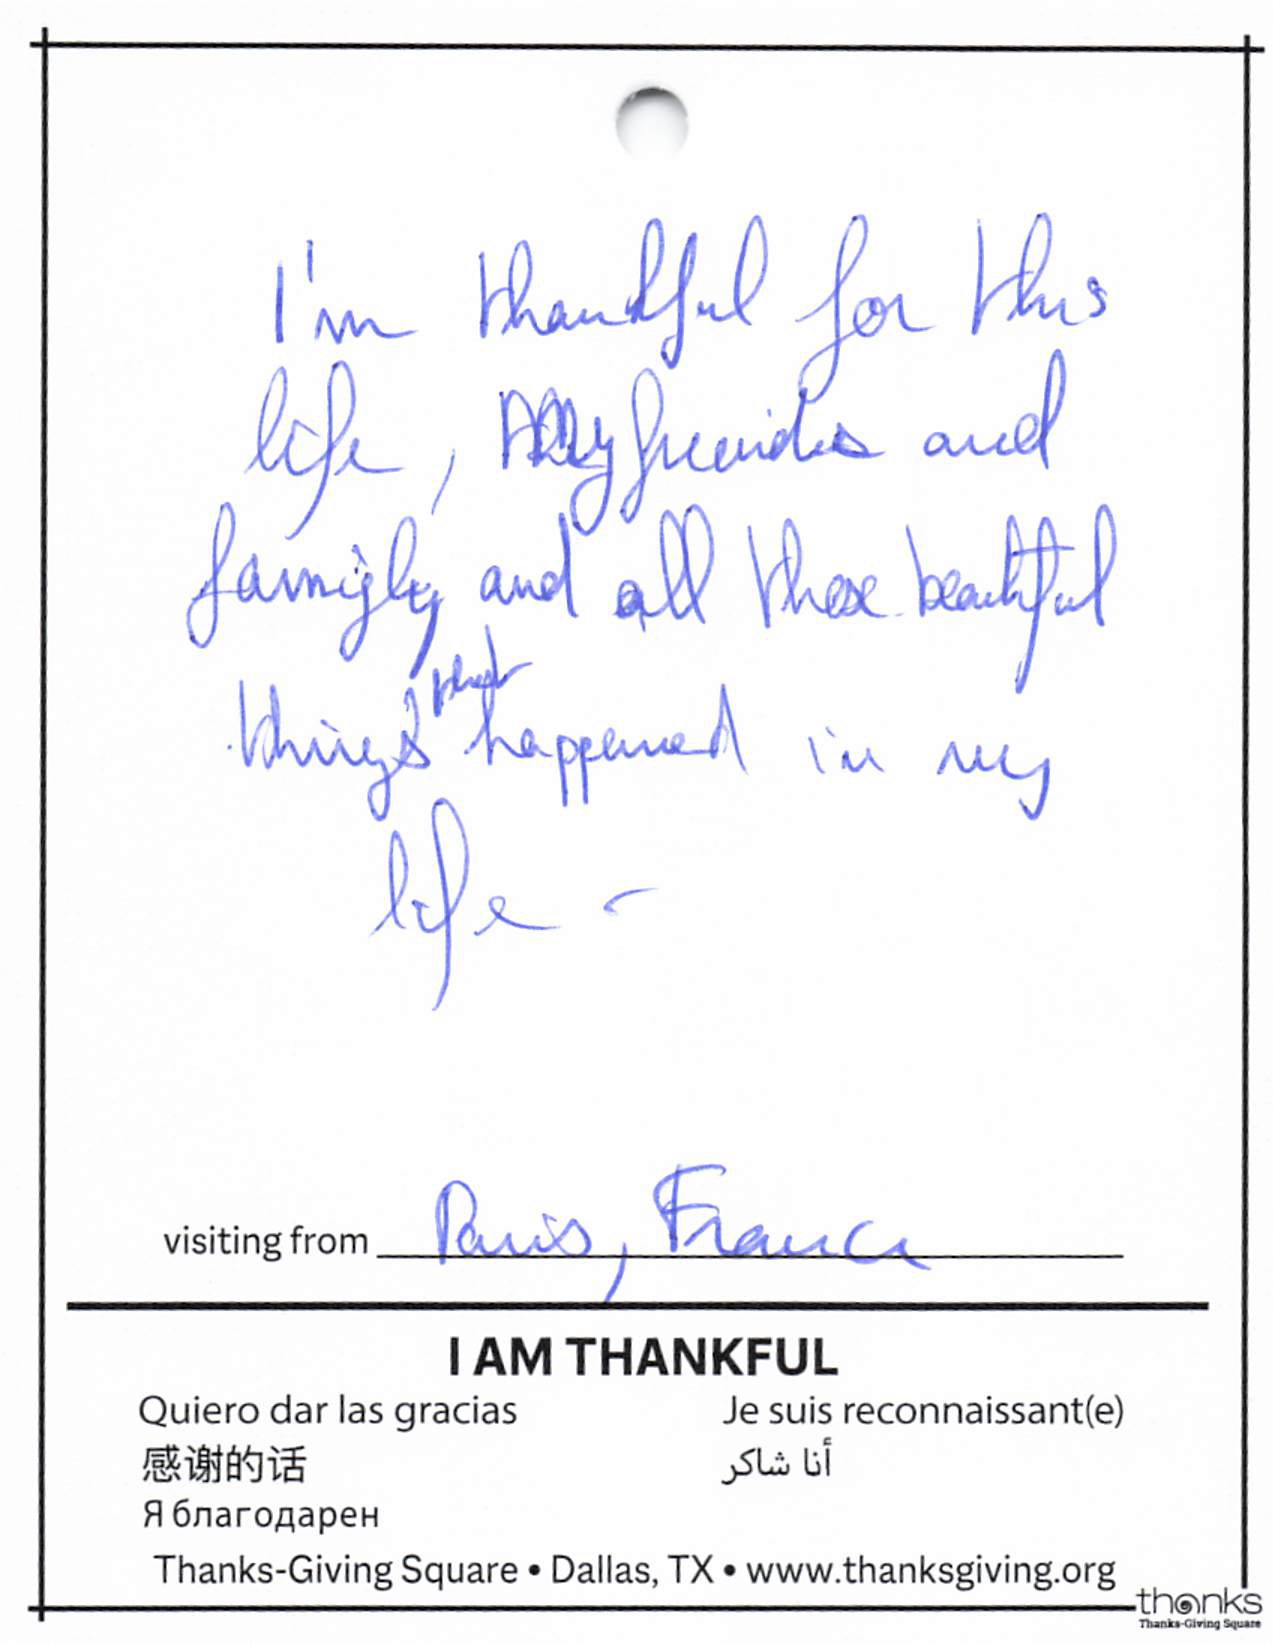 I'm thankful for this
life, My friends and
famigly and all these beautiful
things that happened in my
life -
visiting from Paris, France
I AM THANKFUL
Quiero dar las gracias
Je suis reconnaissant(e)
感谢的话
أنا شاكر
Я благодарен
Thanks-Giving Square • Dallas, TX • www.thanksgiving.org
thanks
Thanks-Giving Square